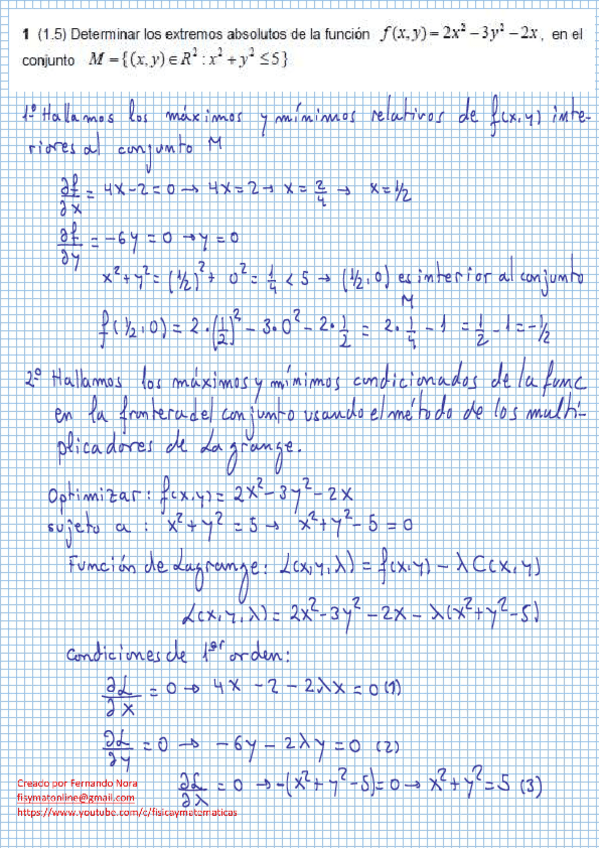 1 (1.5) Determinar los extremos absolutos de la función f(x,y) = 2x² − 3y² − 2x, en el
conjunto M = {(x,y) ∈ R² : x² + y² ≤ 5}
1º Hallamos los máximos y mínimos relativos de f(x,y) inte-
riores al conjunto M
∂f/∂x = 4x − 2 = 0 → 4x = 2 → x = 2/4 → x = 1/2
∂f/∂y = −6y = 0 → y = 0
x² + y² = (1/2)² + 0² = 1/4 < 5 → (1/2, 0) es interior al conjunto
M
f(1/2, 0) = 2·(1/2)² − 3·0² − 2·1/2 = 2·1/4 − 1 = 1/2 − 1 = −1/2
2º Hallamos los máximos y mínimos condicionados de la func
en la frontera del conjunto usando el método de los multi-
plicadores de Lagrange.
Optimizar: f(x,y) = 2x² − 3y² − 2x
sujeto a : x² + y² = 5 → x² + y² − 5 = 0
Función de Lagrange: L(x,y,λ) = f(x,y) − λC(x,y)
L(x,y,λ) = 2x² − 3y² − 2x − λ(x² + y² − 5)
Condiciones de 1er orden:
∂L/∂x = 0 → 4x − 2 − 2λx = 0 (1)
∂L/∂y = 0 → −6y − 2λy = 0 (2)
∂L/∂λ = 0 → −(x² + y² − 5) = 0 → x² + y² = 5 (3)
Creado por Fernando Nora
fisymatonline@gmail.com
https://www.youtube.com/c/fisicaymatematicas